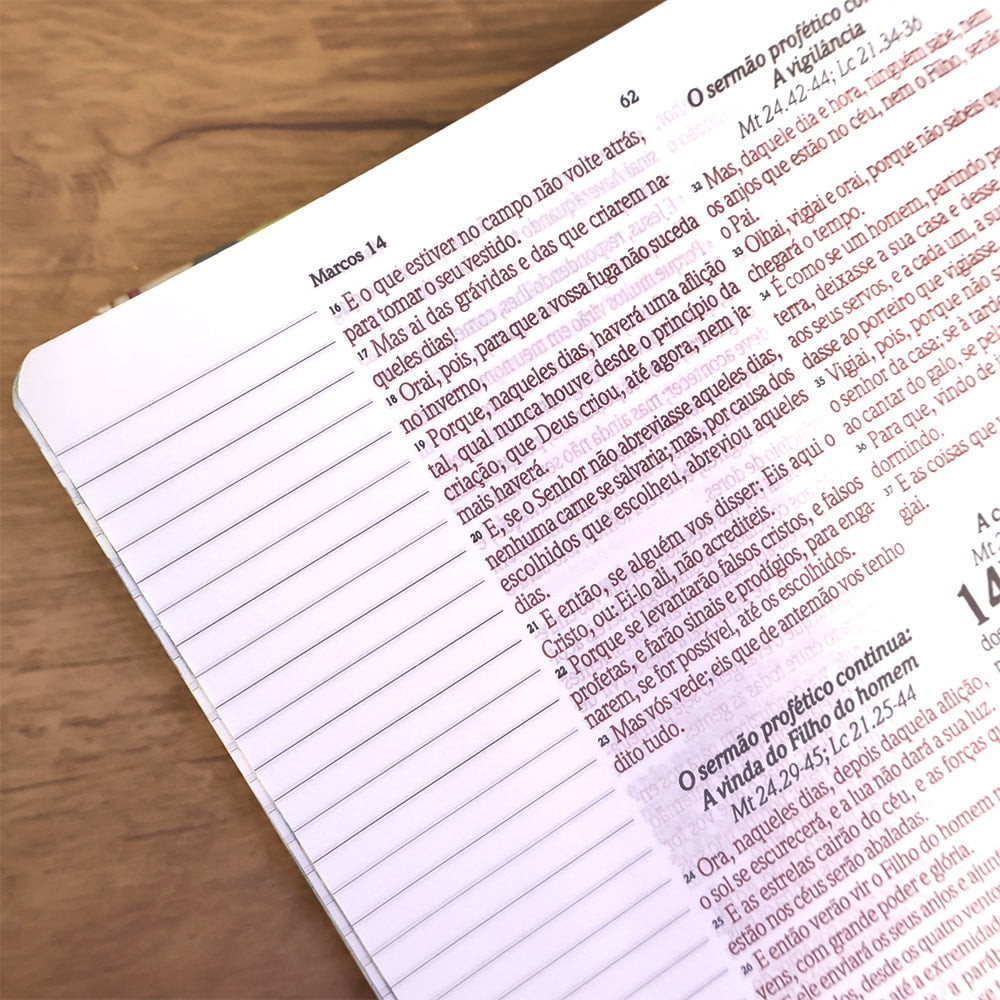 Marcos 14
62
16 E o que estiver no campo não volte atrás,
para tomar o seu vestido.
17 Mas ai das grávidas e das que criarem na-
queles dias!
18 Orai, pois, para que a vossa fuga não suceda
no inverno,
19 Porque, naqueles dias, haverá uma aflição
tal, qual nunca houve desde o princípio da
criação, que Deus criou, até agora, nem ja-
mais haverá.
20 E, se o Senhor não abreviasse aqueles dias,
nenhuma carne se salvaria; mas, por causa dos
escolhidos que escolheu, abreviou aqueles
dias.
21 E então, se alguém vos disser: Eis aqui o
Cristo, ou: Ei-lo ali, não acrediteis.
22 Porque se levantarão falsos cristos, e falsos
profetas, e farão sinais e prodígios, para enga-
narem, se for possível, até os escolhidos.
23 Mas vós vede; eis que de antemão vos tenho
dito tudo.
O sermão profético continua:
A vinda do Filho do homem
Mt 24.29-45; Lc 21.25-44
24 Ora, naqueles dias, depois daquela aflição,
o sol se escurecerá, e a lua não dará a sua luz.
25 E as estrelas cairão do céu, e as forças
estão nos céus serão abaladas.
26 E então verão vir o Filho do homem
vens, com grande poder e glória.
ele enviará os seus anjos e
os, desde os quatro
até a extremidade
a
O sermão profético
A vigilância
Mt 24.42-44; Lc 21.34-36
32 Mas, daquele dia e hora, ninguém sabe, nem
os anjos que estão no céu, nem o Filho, senão
o Pai.
33 Olhai, vigiai e orai, porque não sabeis
chegará o tempo.
34 É como se um homem, partindo
terra, deixasse a sua casa e desse
aos seus servos, e a cada um, a
dasse ao porteiro que vigiasse
35 Vigiai, pois, porque não
o senhor da casa; se à
ao cantar do galo, se
36 Para que, vindo de
dormindo.
37 E as coisas que
giai.
A
Mt
14
do